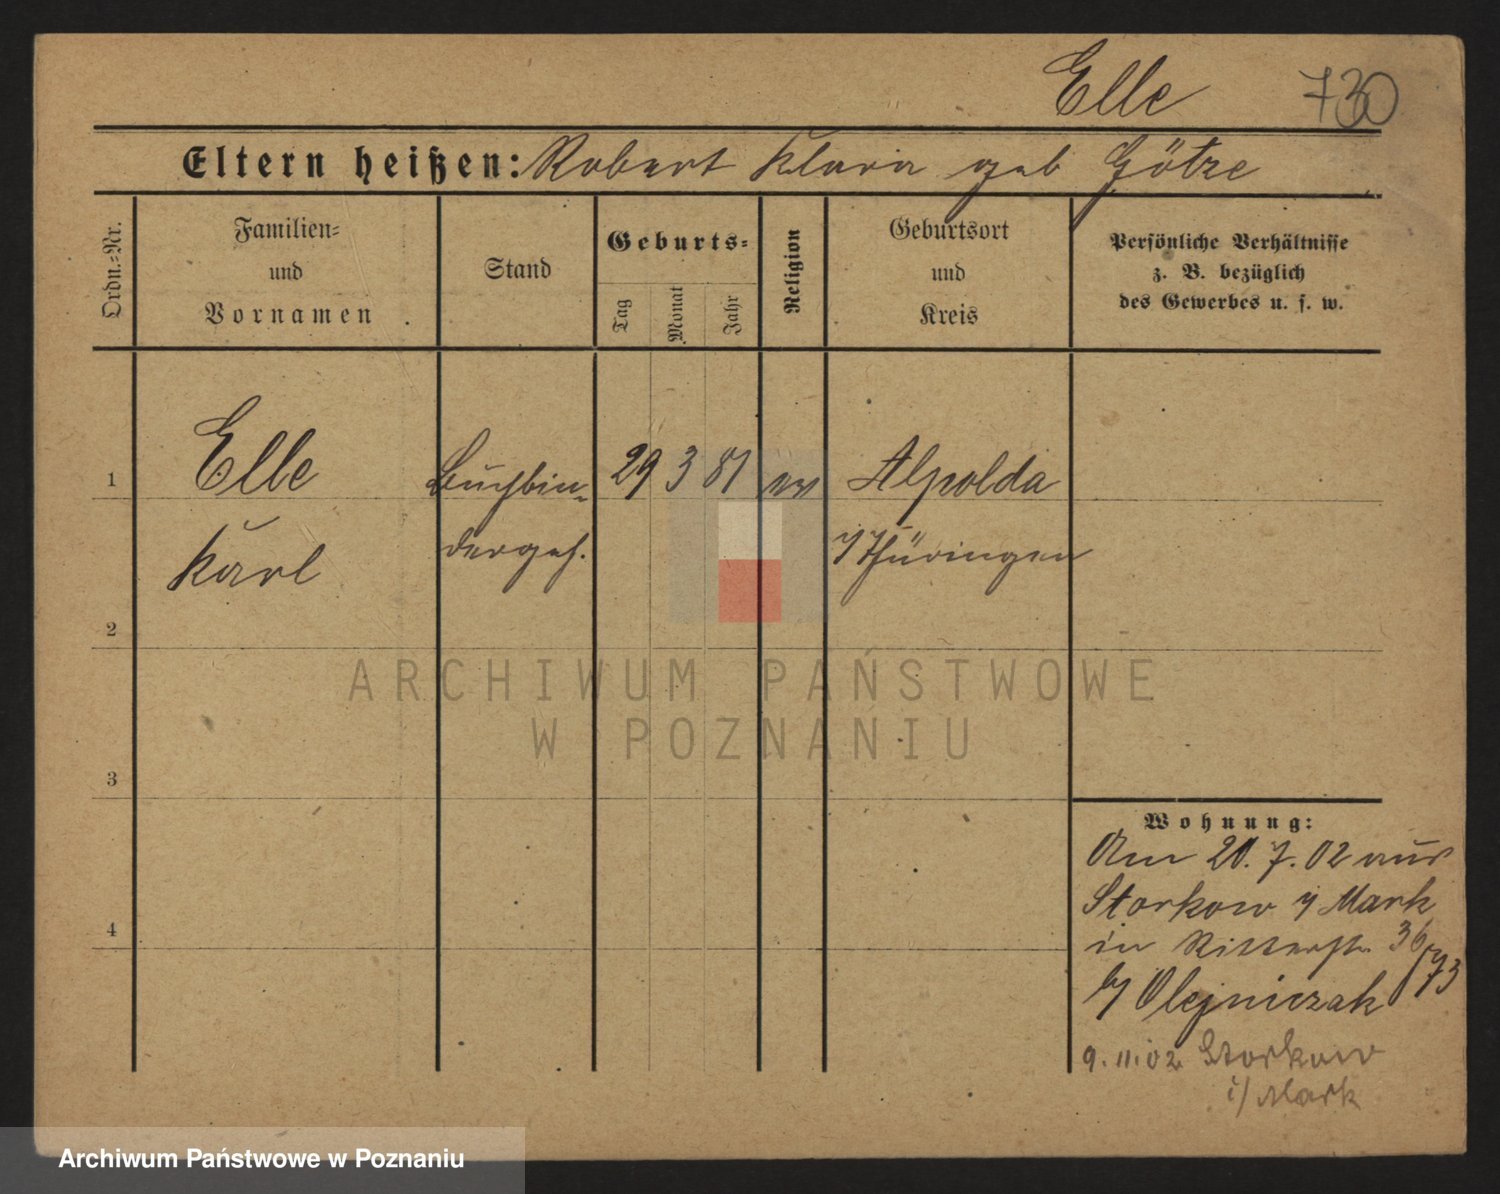 Elle 730
Eltern heißen: Robert Klara geb Götze
Ordn.-Nr.
Familien-
und
Vornamen
Stand
Geburts-
Tag
Monat
Jahr
Religion
Geburtsort
und
Kreis
Persönliche Verhältnisse
z. B. bezüglich
des Gewerbes u. s. w.
1 Elle Buchbin- 29 3 81 ev Alpolda
Karl dergeh. i/Thüringen
2
ARCHIWUM PAŃSTWOWE
W POZNANIU
3
Wohnung:
Am 20.7.02 aus
Storkow i/Mark
4 in Ritterstr. 36
b/ Olejniczak /73
9.11.02 Storkow
i/Mark
Archiwum Państwowe w Poznaniu